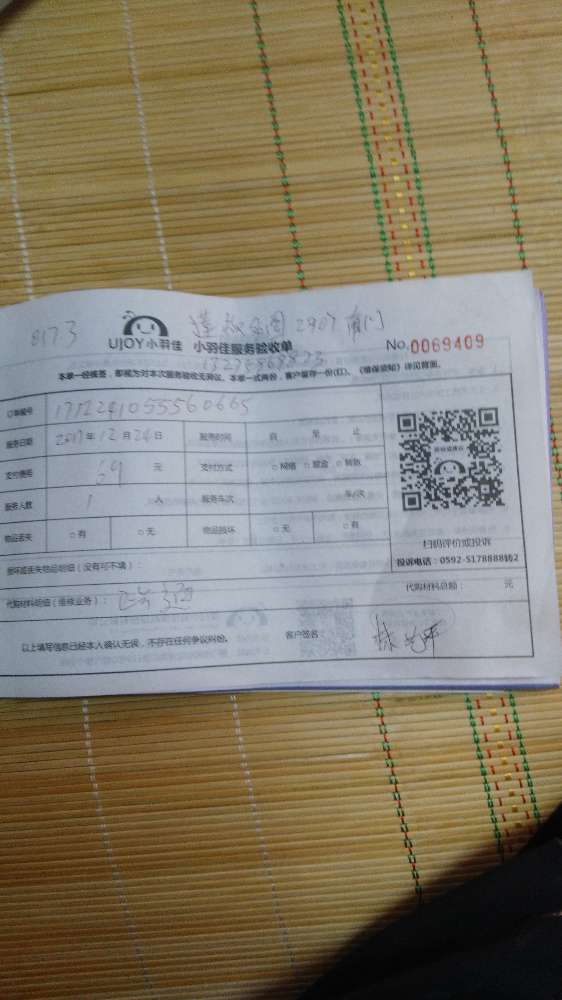 817.3
2907
UJOY小羽佳 小羽佳服务验收单 No.0069409
本单一经接签，即视为对本次服务验收无异议。本单一式两份，客户留存一份(红)。《维保须知》详见背面。
订单编号 1712241055560665
服务日期 2017年12月24日 服务时间 自 至 止
支付费用 69 元 支付方式 □网络 □现金 □转账
服务人数 1 人 服务车次 车/次
物品丢失 □有 □无 物品损坏 □无 □有
扫码评价或投诉
投诉电话：0592-5178888转2
损坏或丢失物品明细（没有可不填）：
代购材料明细（维修业务）： 代购材料总额： 元
以上填写信息已经本人确认无误，不存在任何争议纠纷。 客户签名：